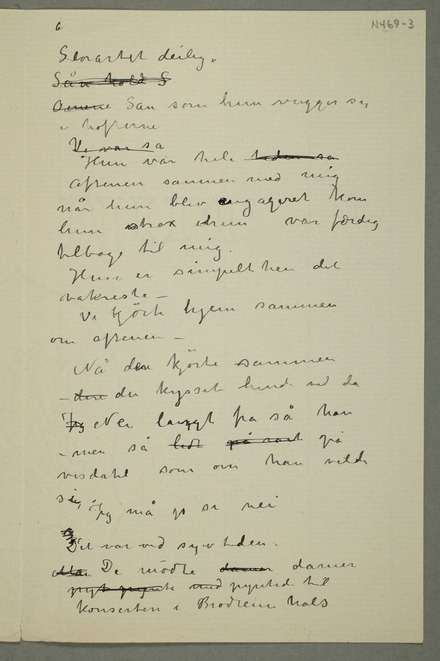 6
N468-3
Storartet deilig.
Såa hold S
Armene San som hun vugger sig
i hofterne
Vi var sa
Hun var hele tiden sa
aftenen sammen med mig
når hun blev engageret kom
hun strax hun var færdig
tilbage til mig.
Hun er simpelthen det
vakreste –
Vi kjörte hjem sammen
om aftenen –
Nå den kjörte sammen
– den du kysset hend ved da
Jeg Nei langt fra så han
– men så lidt på rart på
visdahl som om han vilde
sig Jeg må jo si nei
Det var ved syv tiden.
De mödte damer damer
med pynted til
konserten i Brödrene Hals